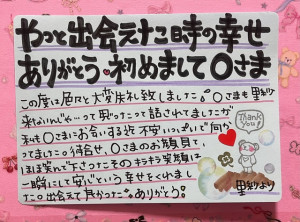 やっと出会えた時の幸せ
ありがとう 初めまして〇さま
この度は色々と大変失礼致しました。〇さまも里紗
来ないんじゃ…って思ったって話されてましたが
私も〇さまにお会いする迄不安いっぱいで向か
ってましたこ待合せ、〇さまのお顔見て、
ほほ笑んで下さったそのキラキラ笑顔に
一瞬にして安心という幸せをくれまし
た 出会えて良かった ありがとう
Thank You!
里紗より